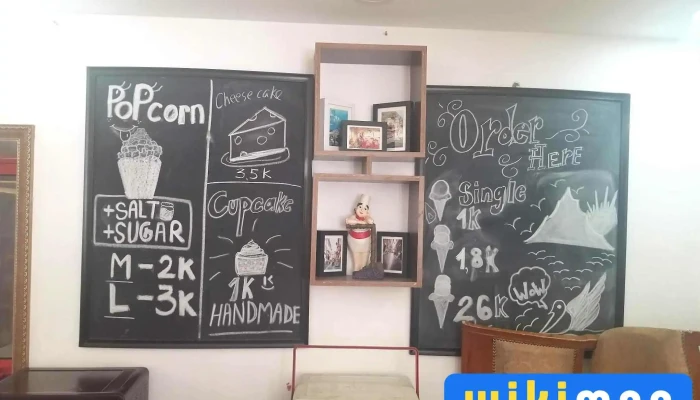 PoPcorn
+SALT
+SUGAR
M-2K
L-3K
Cheese cake
3.5K
Cupcake
1K
HANDMADE
Order
HERE
Single
1K
1,8K
26K
WOW